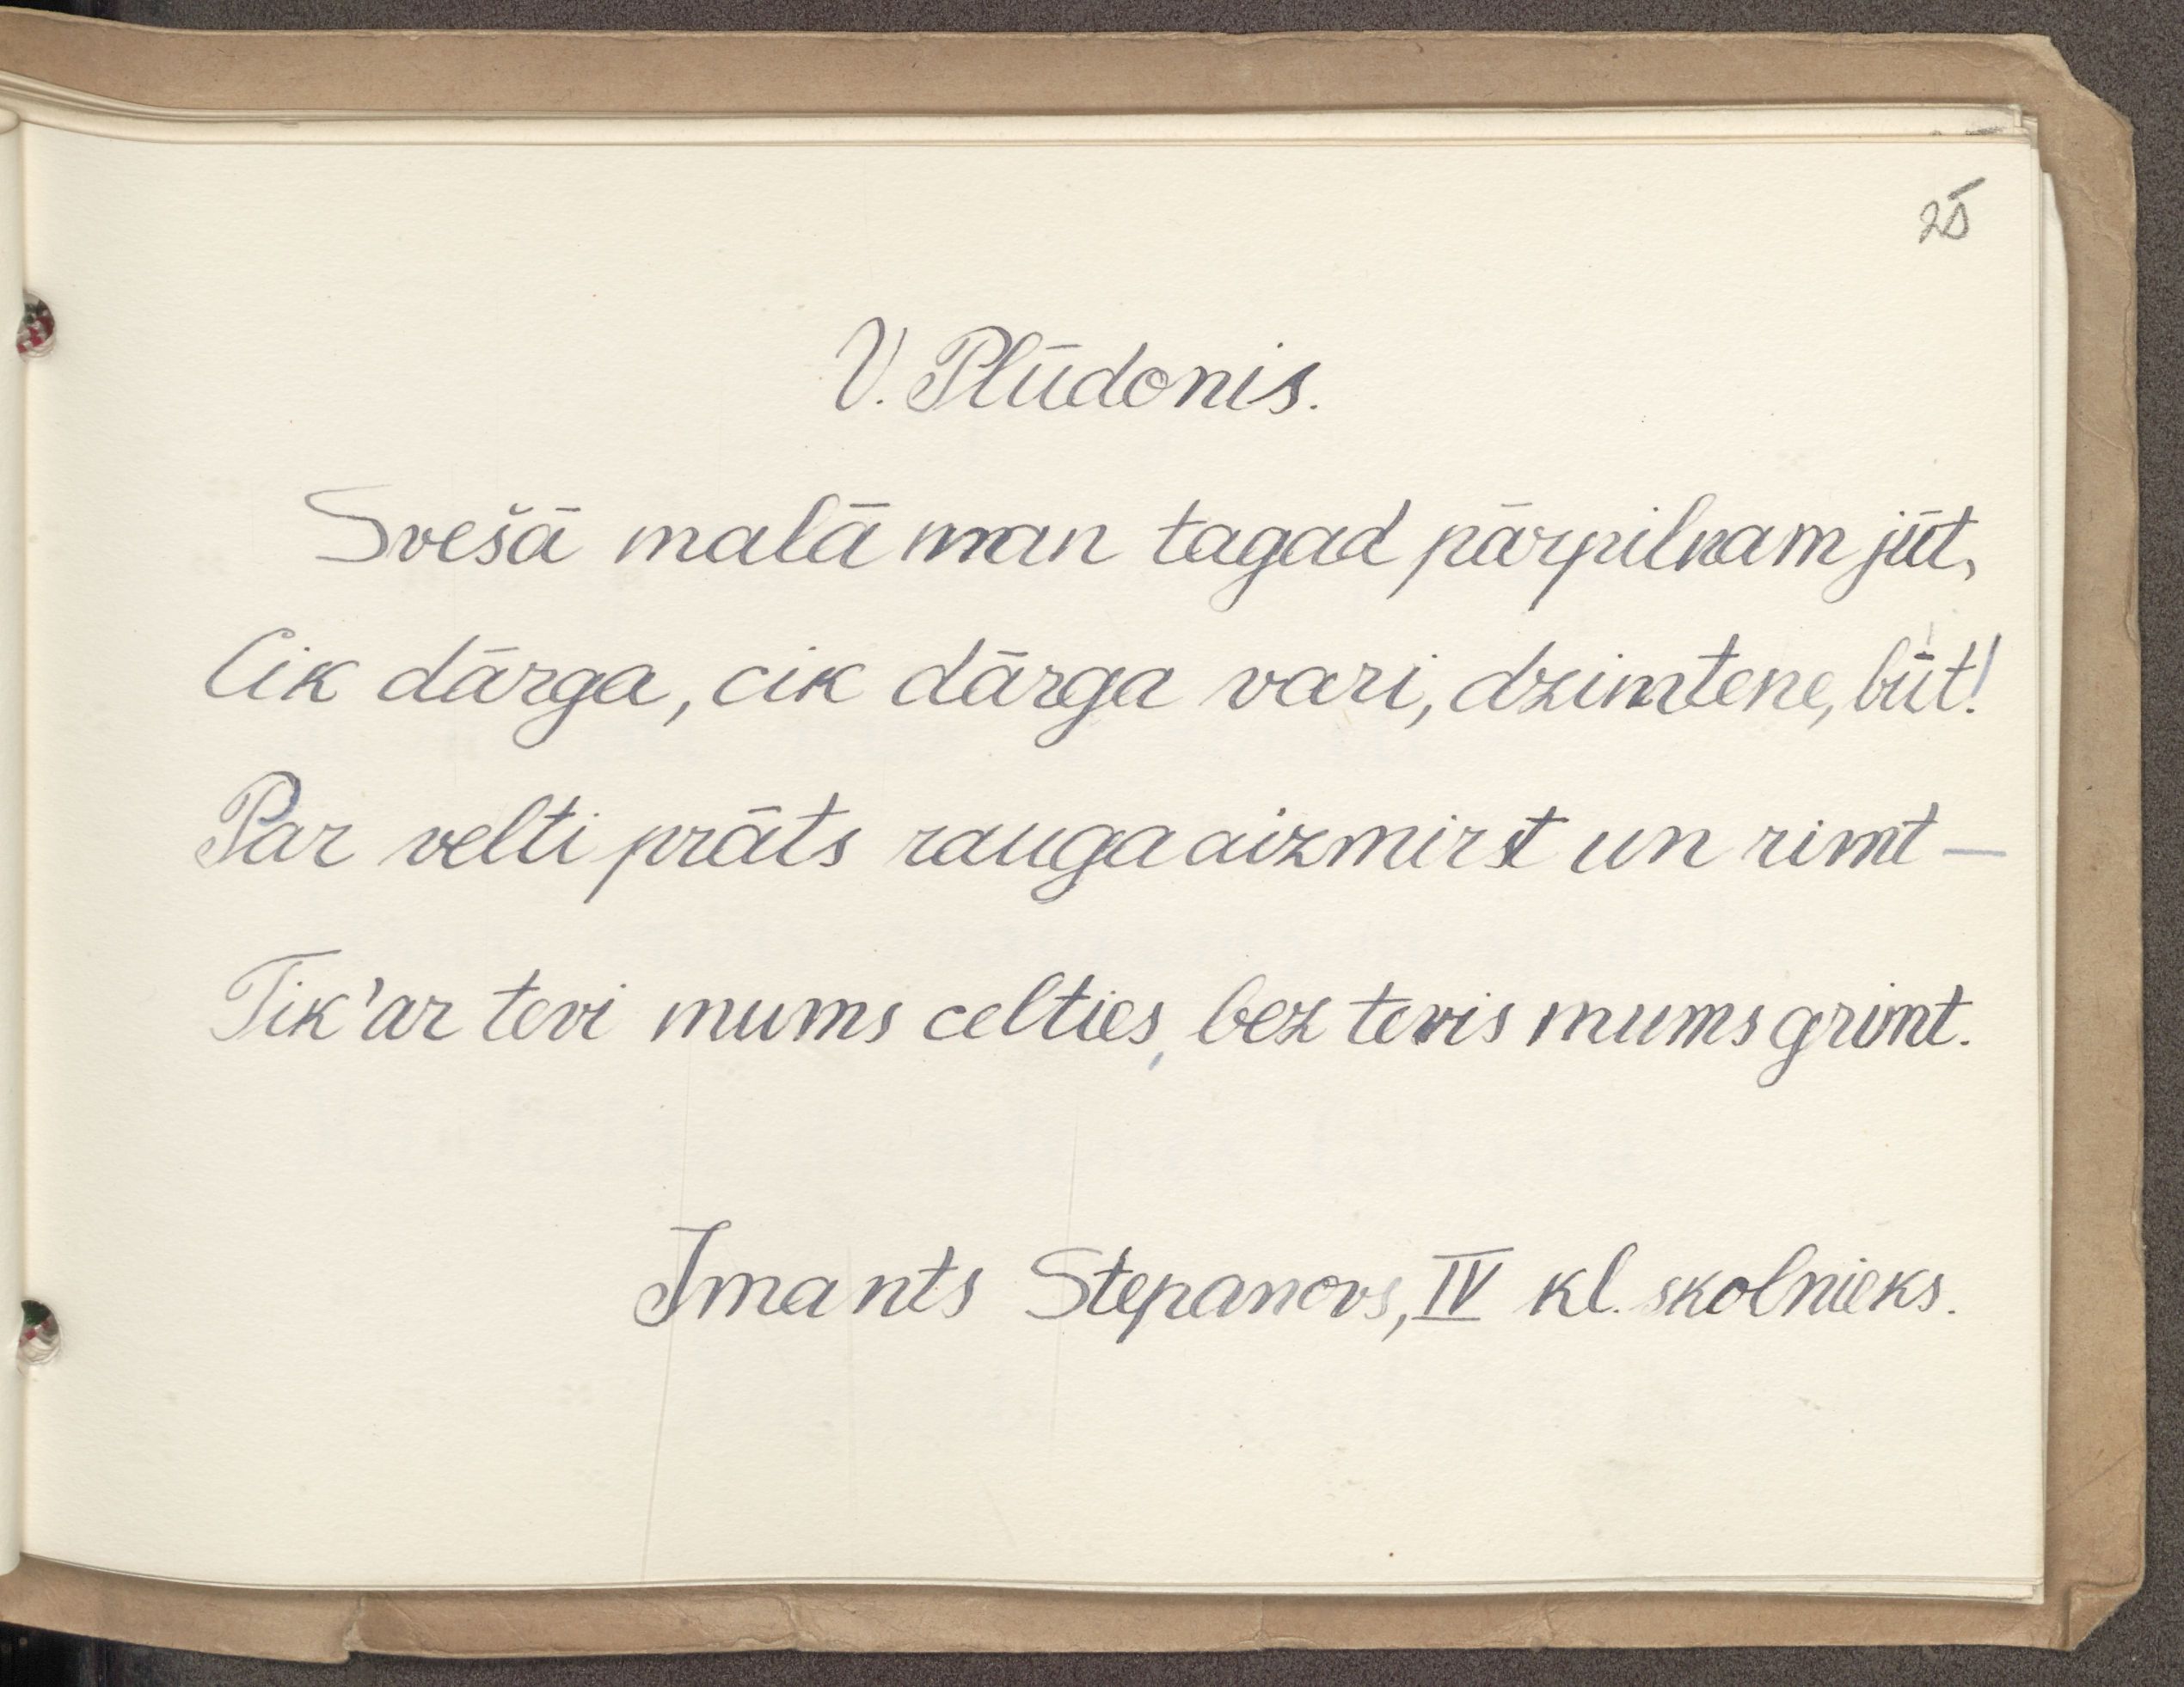 25
V. Plūdonis.
Svešā malā man tagad pārpilnam jūt,
Cik dārga, cik dārga vari, dzimtene, būt!
Par velti prāts rauga aizmirst un rimt —
Tik' ar tevi mums celties, bez tevis mums grimt.
Imants Stepanovs, IV kl. skolnieks.